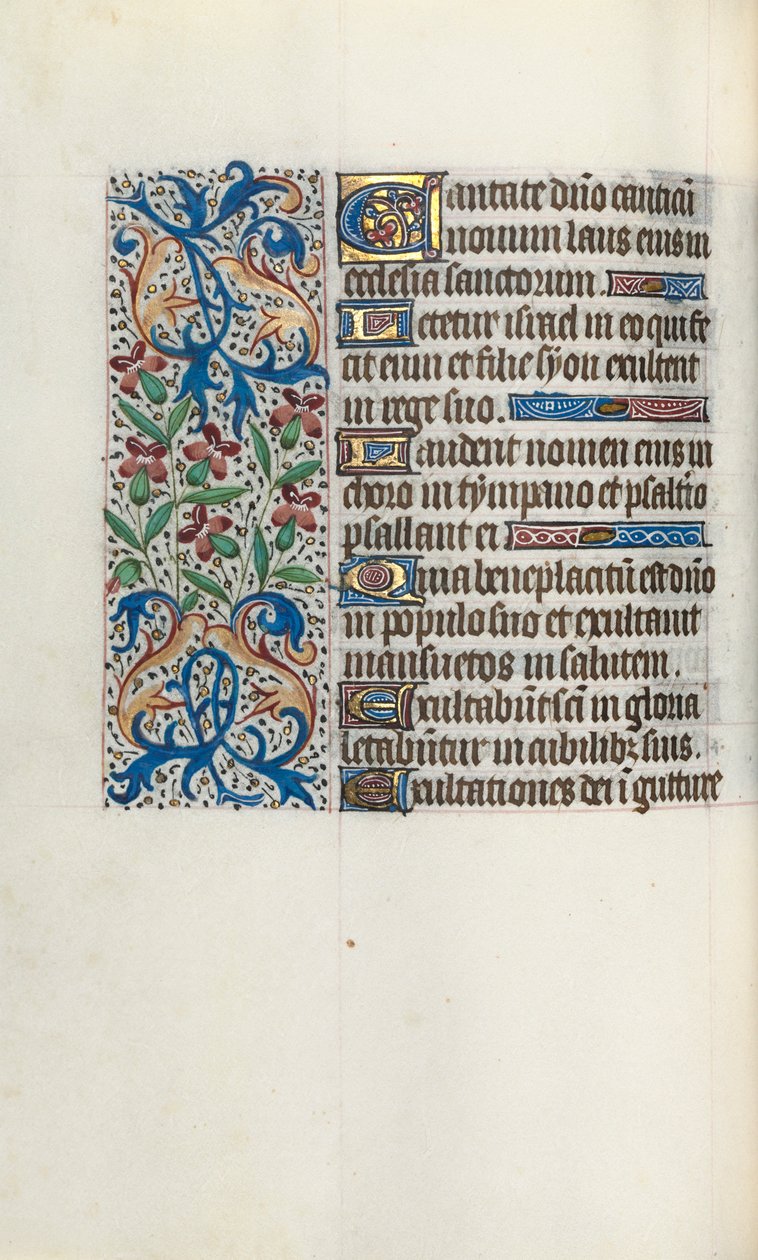 Cantate dño canticũ
nouum laus eius in
ecclesia sanctorum.
Letetur israel in eo qui fe
cit eum et filie syon exultent
in rege suo.
Laudent nomen eius in
choro in tympano et psalt̃io
psallant ei
Quia beneplacitũ est dño
in populo suo et exultauit
mansuetos in salutem.
Exultabũt sc̃i in gloria
letabũtur in cubilibꝫ suis.
Exultationes dei ĩ gutture